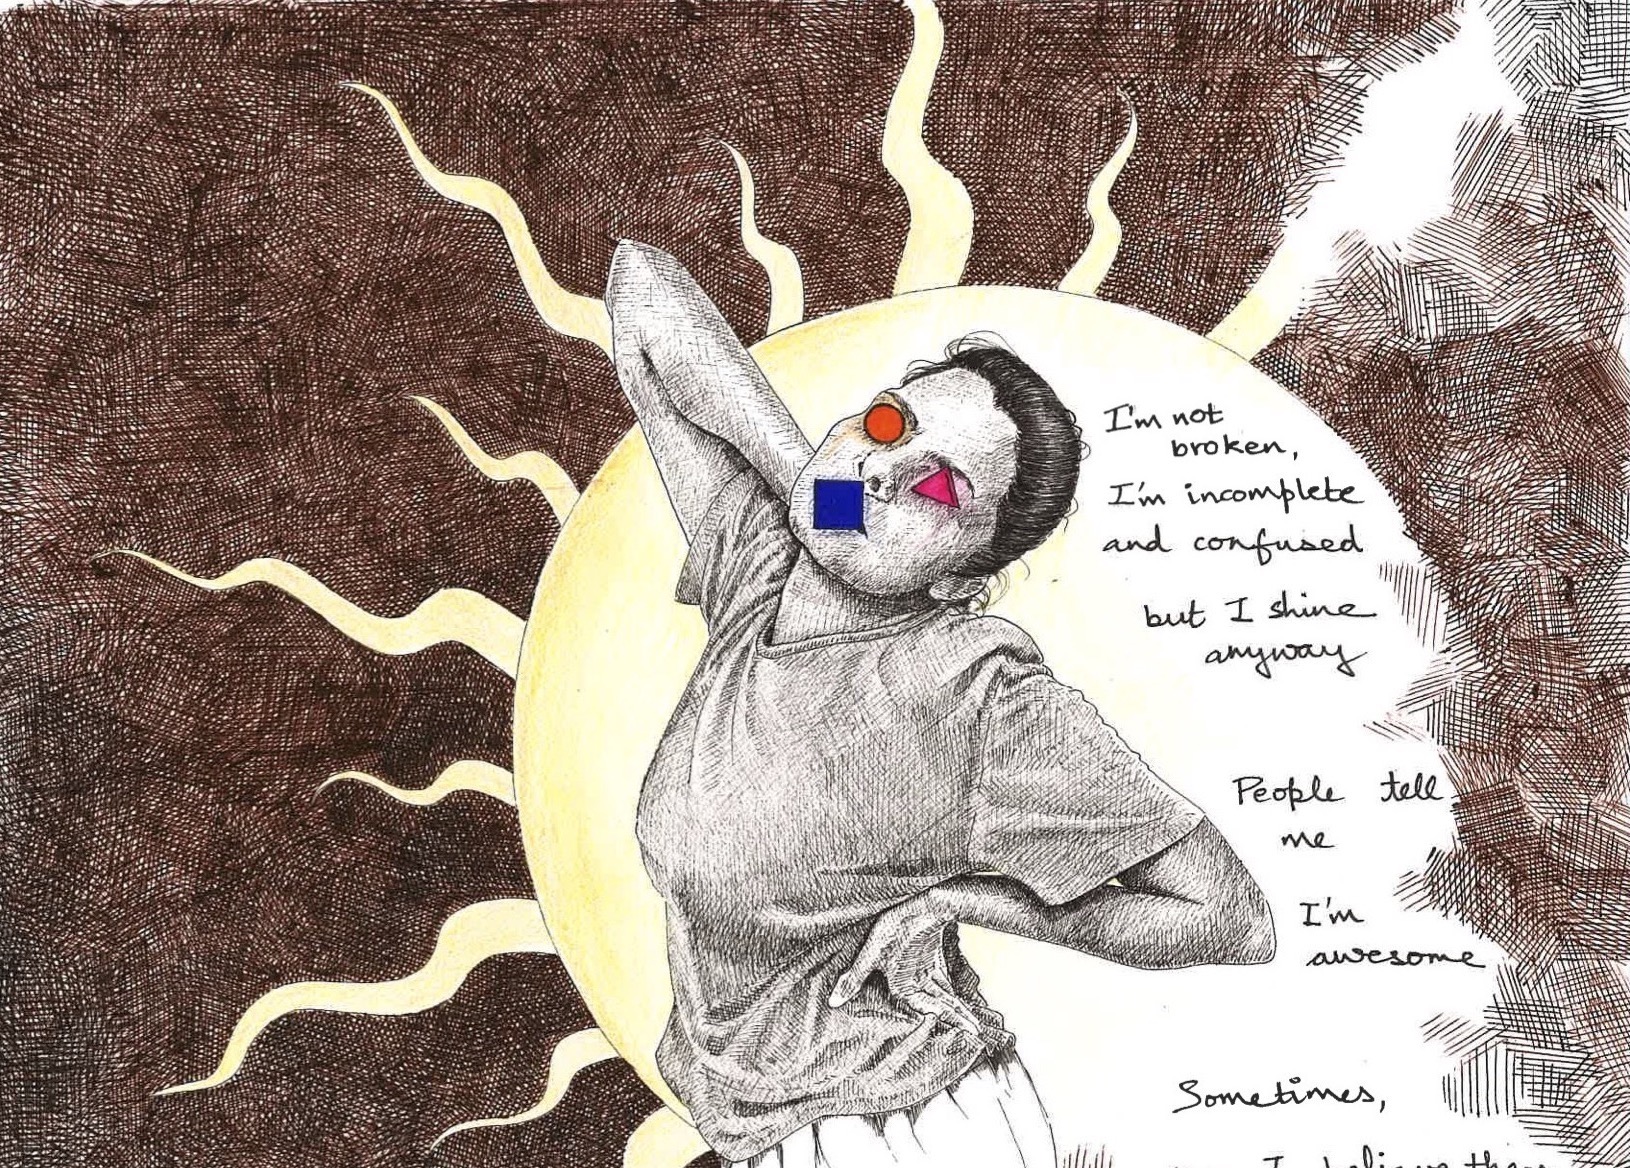 I'm not
broken,
I'm incomplete
and confused
but I shine
anyway
People tell
me
I'm
awesome
Sometimes,
I believe them